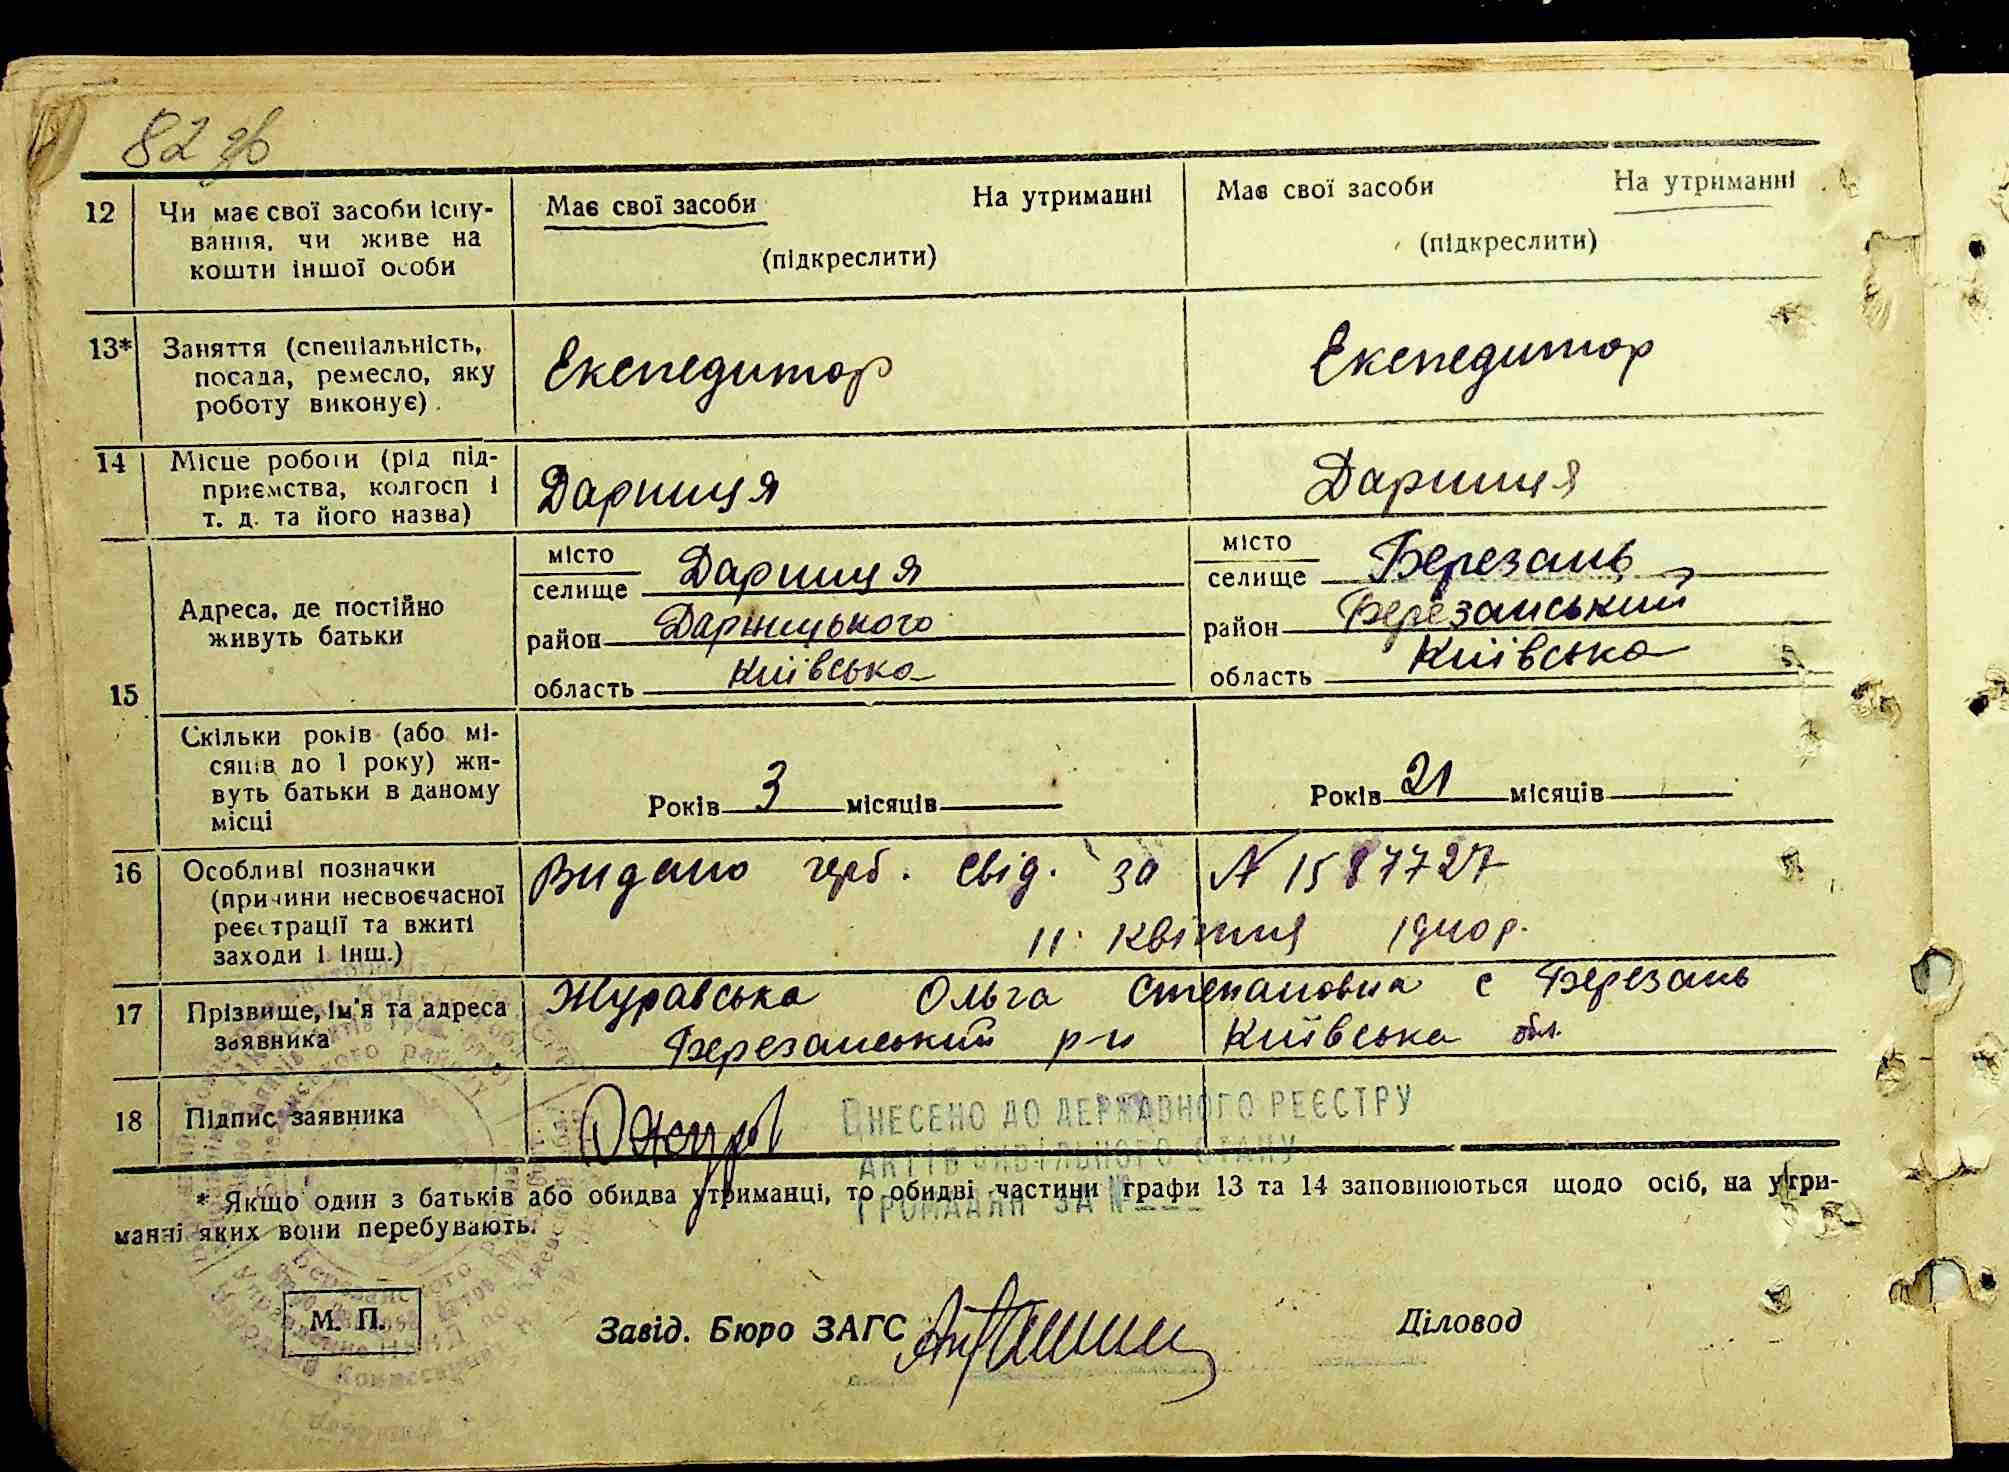 82 зв
12 Чи має свої засоби існу- Має свої засоби На утриманні Має свої засоби На утриманні
вання, чи живе на (підкреслити) (підкреслити)
кошти іншої особи
13* Заняття (спеціальність, Експедитор Експедитор
посада, ремесло, яку
роботу виконує)
14 Місце роботи (рід під- Дарниця Дарниця
приємства, колгосп і
т. д. та його назва)
15 Адреса, де постійно
живуть батьки
місто
селище Дарниця
район Дарницького
область Київська
місто
селище Березань
район Березанський
область Київська
Скільки років (або мі-
сяців до 1 року) жи-
вуть батьки в даному
місці
Років 3 місяців
Років 21 місяців
16 Особливі позначки Видано герб. свід. за N 1587727
(причини несвоєчасної
реєстрації та вжиті 11 квітня 1940 р.
заходи і інш.)
17 Прізвище, ім'я та адреса Журавська Ольга Степановна с Березань
заявника Березанський р-н Київська обл.
18 Підпис заявника
ВНЕСЕНО ДО ДЕРЖАВНОГО РЕЄСТРУ
АКТІВ ЦИВІЛЬНОГО СТАНУ
ГРОМАДЯН ЗА №
* Якщо один з батьків або обидва утриманці, то обидві частини графи 13 та 14 заповнюються щодо осіб, на утри-
манні яких вони перебувають.
М. П.
Завід. Бюро ЗАГС
Діловод